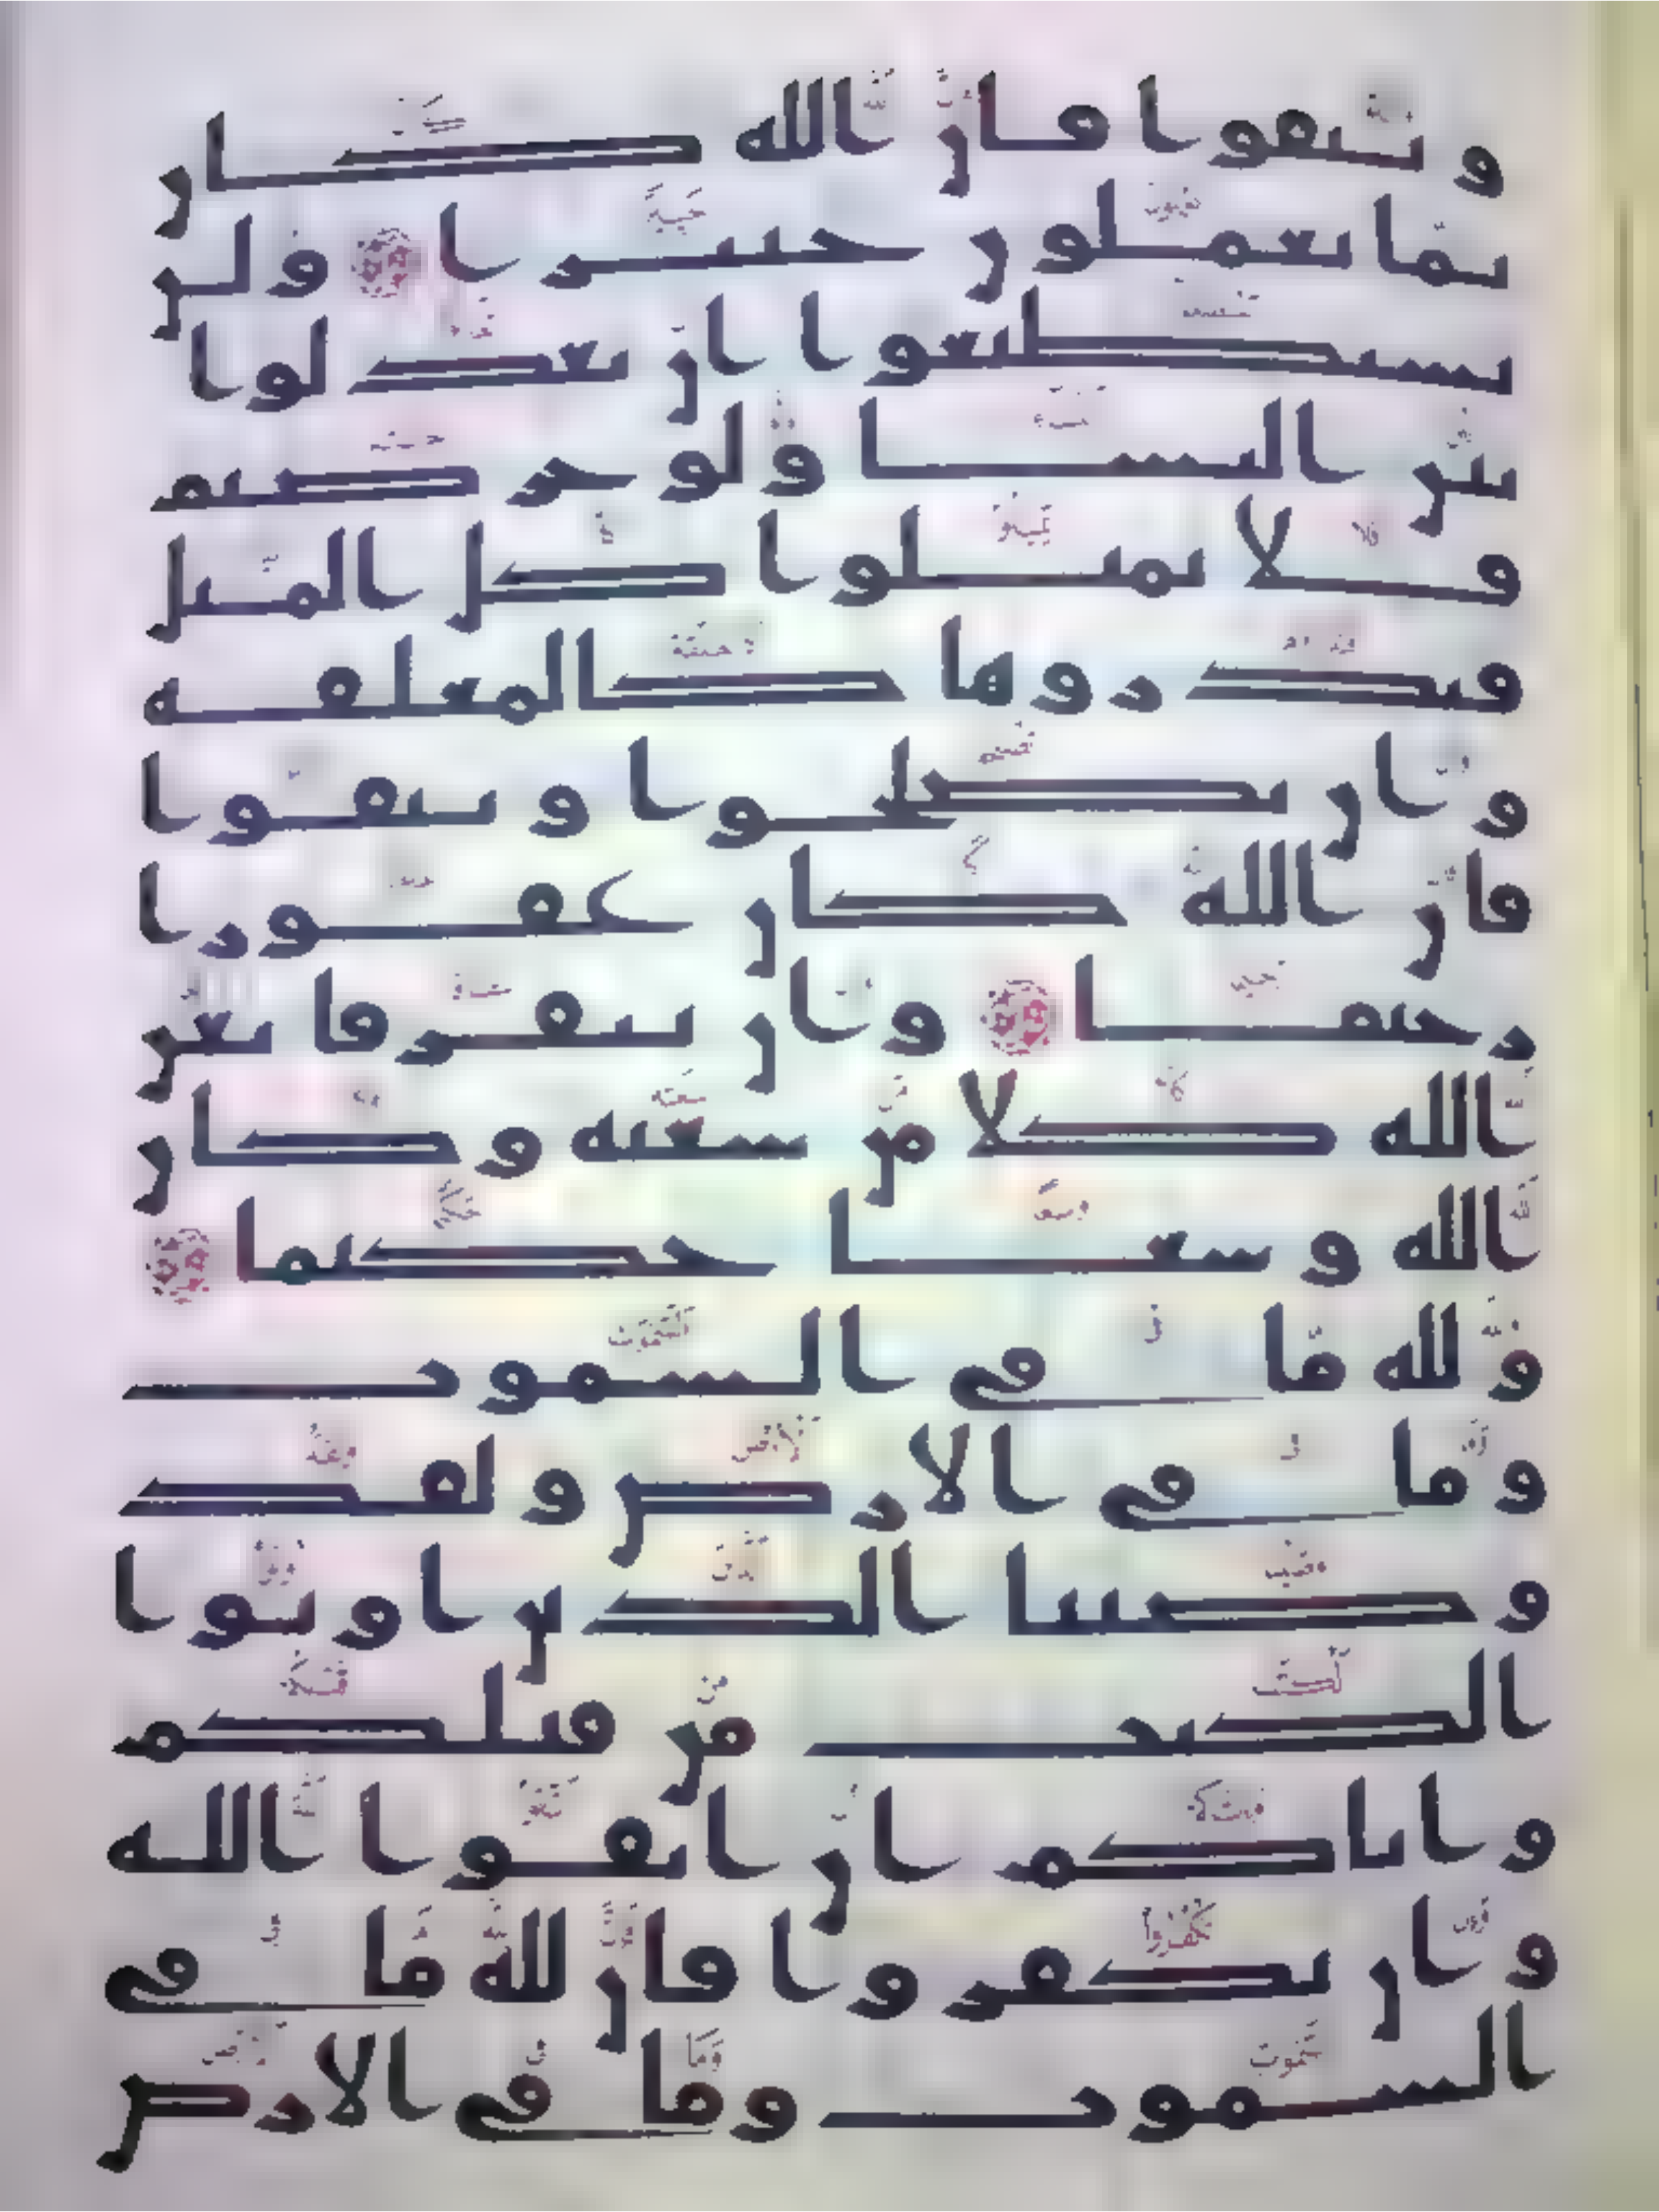 وتتقوا فان الله كان
بما تعملون خبيرا ولن
تستطيعوا ان تعدلوا
بين النسا ولو حرصتم
فلا تميلوا كل الميل
فتذروها كالمعلقه
وان تصلحوا وتتقوا
فان الله كان غفورا
رحيما وان يتفرقا يغن
الله كلا من سعته وكان
الله وسعا حكيما
ولله ما في السموت
وما في الارض ولقد
وصينا الذين اوتوا
الكتب من قبلكم
واياكم ان اتقوا الله
وان تكفروا فان لله ما في
السموت وما في الارض